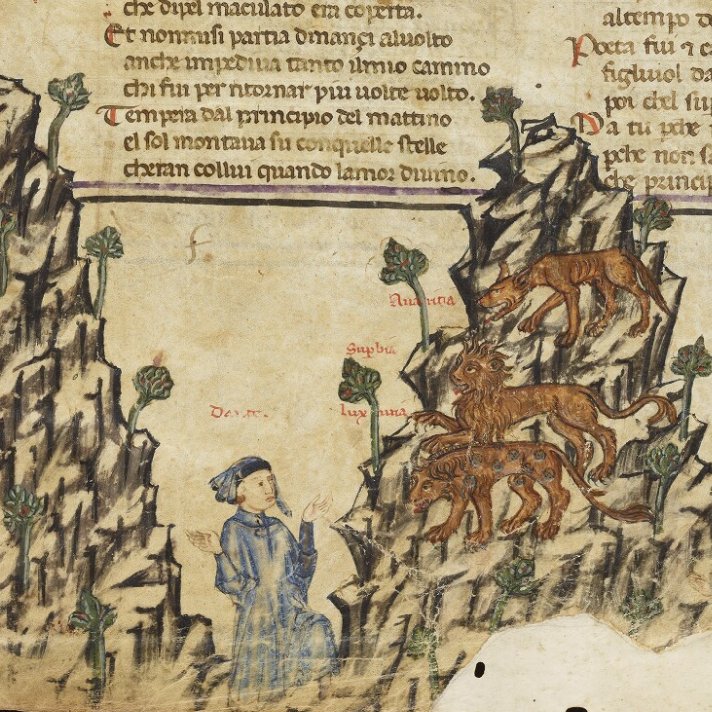 che dipel maculato era coperta.
Et nonmisi partia dinançi aluolto
anche impediua tanto ilmio camino
chi fui per ritornar piu uolte uolto.
Tempera dal principio del mattino
el sol montaua su conquelle stelle
cheran collui quando lamor diuino.
altempo de
Poeta fui
figliuol da
poi chel sup
Ma tu pche
pche non sa
che princip
f.
Auaritia
Supbia
Dante.
luxuria